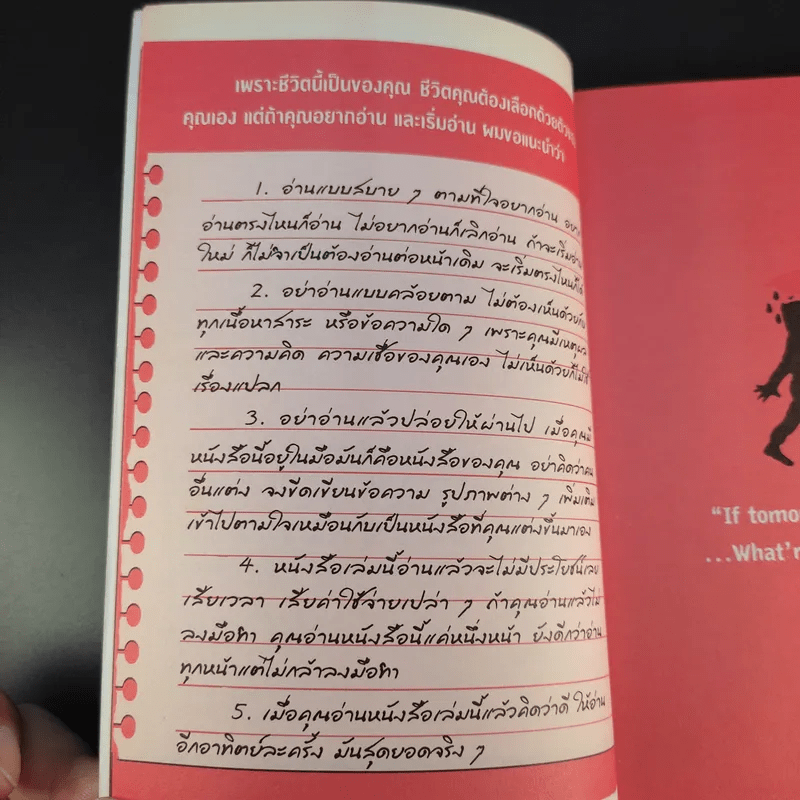 เพราะชีวิตนี้เป็นของคุณ ชีวิตคุณต้องเลือกด้วยตัวของ
คุณเอง แต่ถ้าคุณอยากอ่าน และเริ่มอ่าน ผมขอแนะนำว่า
1. อ่านแบบสบาย ๆ ตามที่ใจอยากอ่าน อยาก
อ่านตรงไหนก็อ่าน ไม่อยากอ่านก็เลิกอ่าน ถ้าจะเริ่มอ่าน
ใหม่ ก็ไม่จำเป็นต้องอ่านต่อหน้าเดิม จะเริ่มตรงไหนก็ได้
2. อย่าอ่านแบบคล้อยตาม ไม่ต้องเห็นด้วยกับ
ทุกเนื้อหาสาระ หรือข้อความใด ๆ เพราะคุณมีเหตุผล
และความคิด ความเชื่อของคุณเอง ไม่เห็นด้วยก็ไม่ใช่
เรื่องแปลก
3. อย่าอ่านแล้วปล่อยให้ผ่านไป เมื่อคุณมี
หนังสือนี้อยู่ในมือมันก็คือหนังสือของคุณ อย่าคิดว่าคน
อื่นแต่ง จงขีดเขียนข้อความ รูปภาพต่าง ๆ เพิ่มเติม
เข้าไปตามใจเหมือนกับเป็นหนังสือที่คุณแต่งขึ้นมาเอง
4. หนังสือเล่มนี้อ่านแล้วจะไม่มีประโยชน์เลย
เสียเวลา เสียค่าใช้จ่ายเปล่า ๆ ถ้าคุณอ่านแล้วไม่
ลงมือทำ คุณอ่านหนังสือนี้แค่หนึ่งหน้า ยังดีกว่าอ่าน
ทุกหน้าแต่ไม่กล้าลงมือทำ
5. เมื่อคุณอ่านหนังสือเล่มนี้แล้วคิดว่าดี ให้อ่าน
อีกอาทิตย์ละครั้ง มันสุดยอดจริง ๆ
"If tomo
...What'r